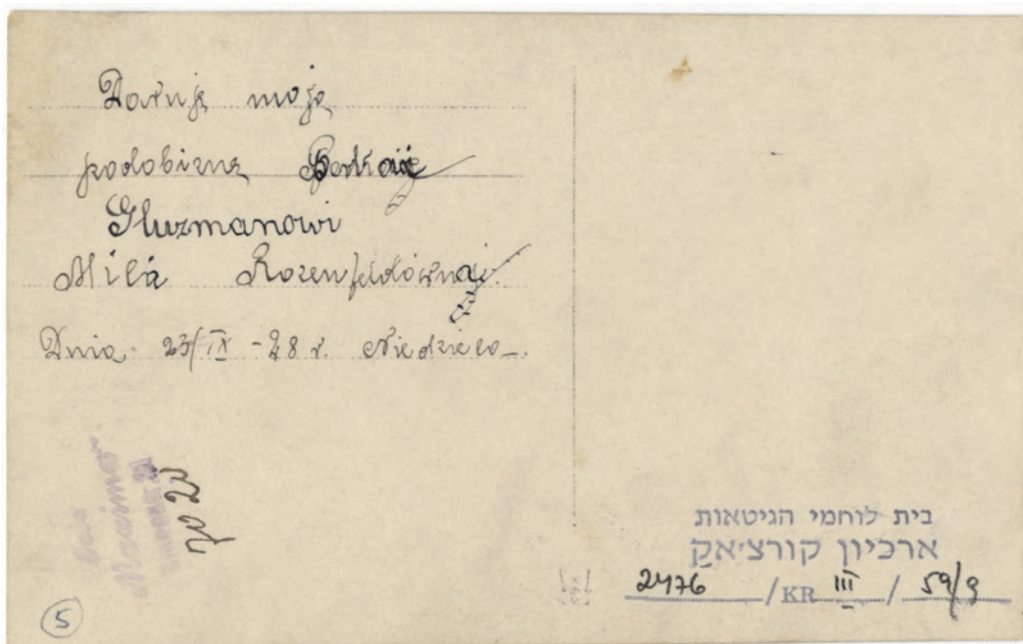 Daruję moją
podobiznę
Gluzmanowi
Mila Rozenfeldówna
Dnia 23/IX - 28 r. Niedziela.
5
בית לוחמי הגיטאות
ארכיון קורצ'אק
2476 /KR III / 59/9